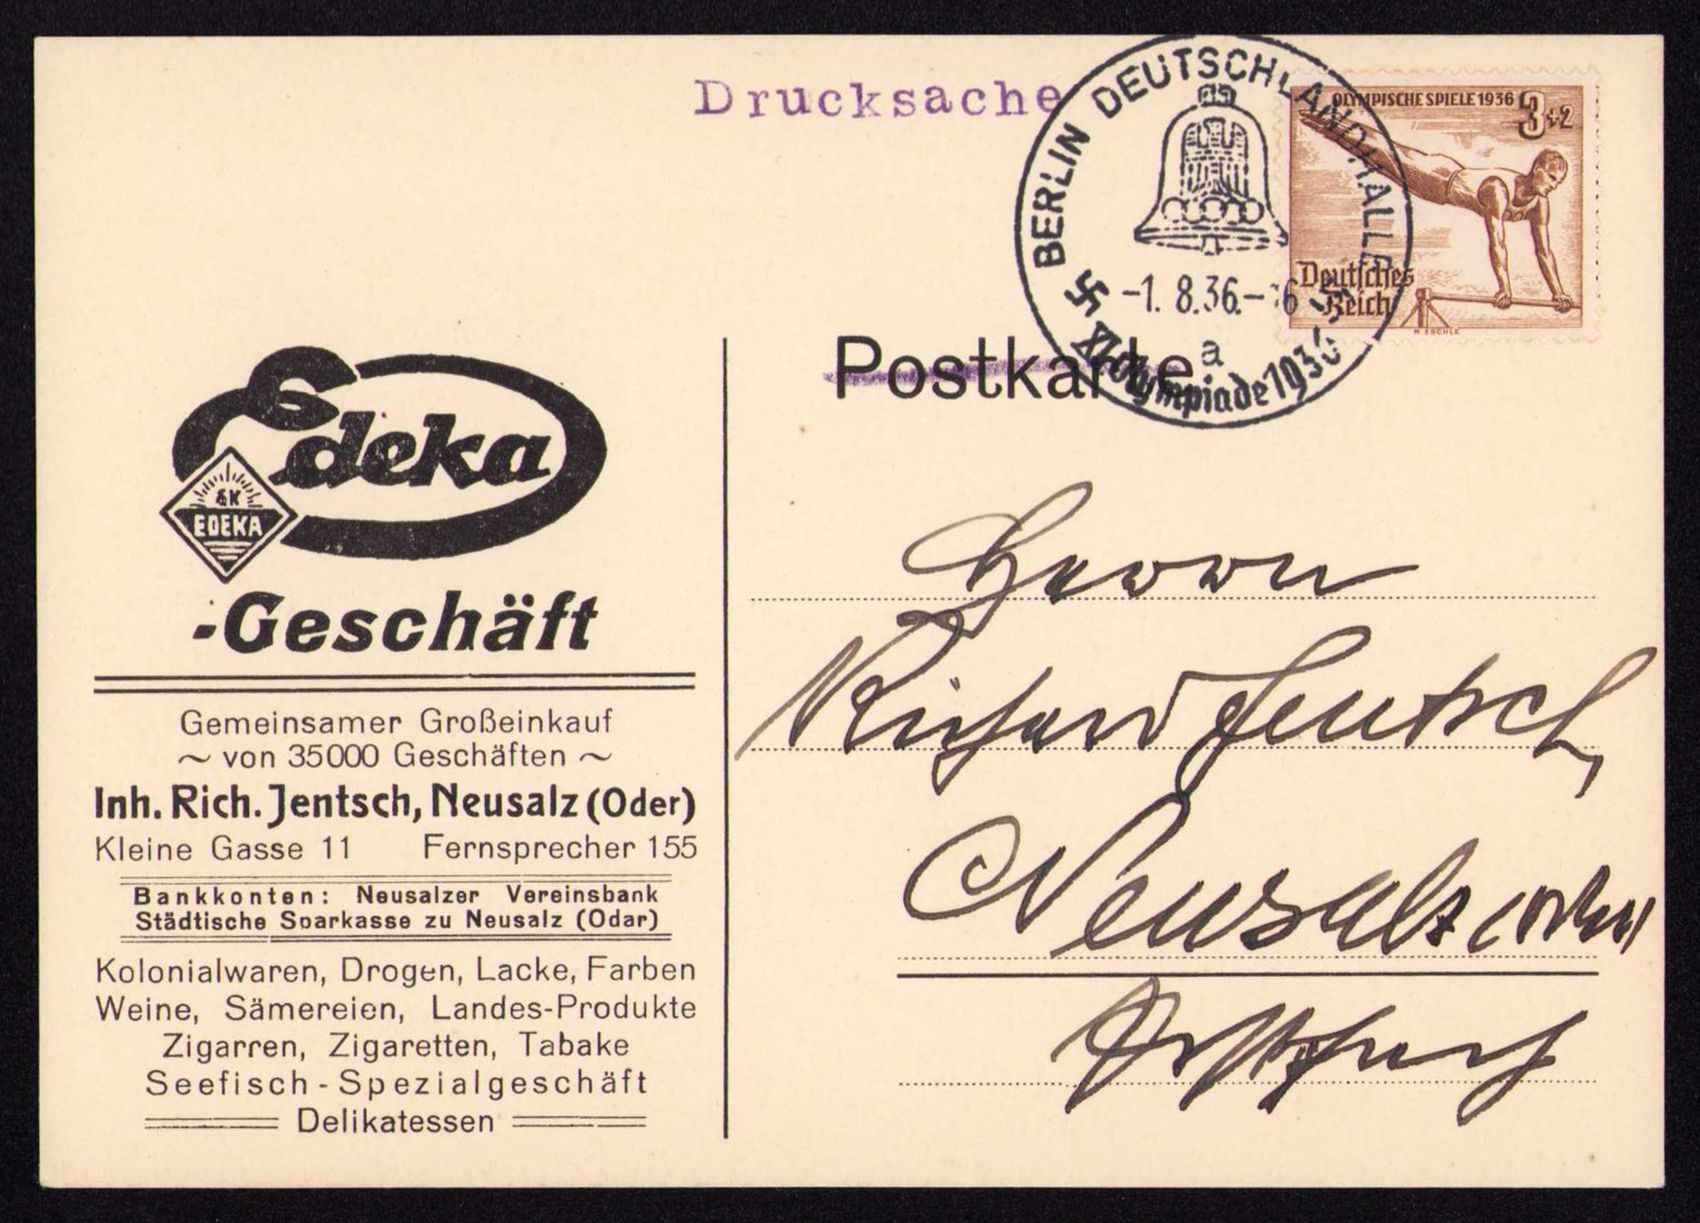 Drucksache
BERLIN DEUTSCHLANDHALLE
-1.8.36.-16
a
XI. Olympiade 1936
OLYMPISCHE SPIELE 1936
3+2
Deutsches
Reich
M. ESCHLE
Postkarte
Edeka
EK
EDEKA
-Geschäft
Gemeinsamer Großeinkauf
~ von 35000 Geschäften ~
Inh. Rich. Jentsch, Neusalz (Oder)
Kleine Gasse 11 Fernsprecher 155
Bankkonten: Neusalzer Vereinsbank
Städtische Sparkasse zu Neusalz (Odar)
Kolonialwaren, Drogen, Lacke, Farben
Weine, Sämereien, Landes-Produkte
Zigarren, Zigaretten, Tabake
Seefisch-Spezialgeschäft
Delikatessen
Herrn
Richard Jentsch,
Neusalz (Oder)
Postfach